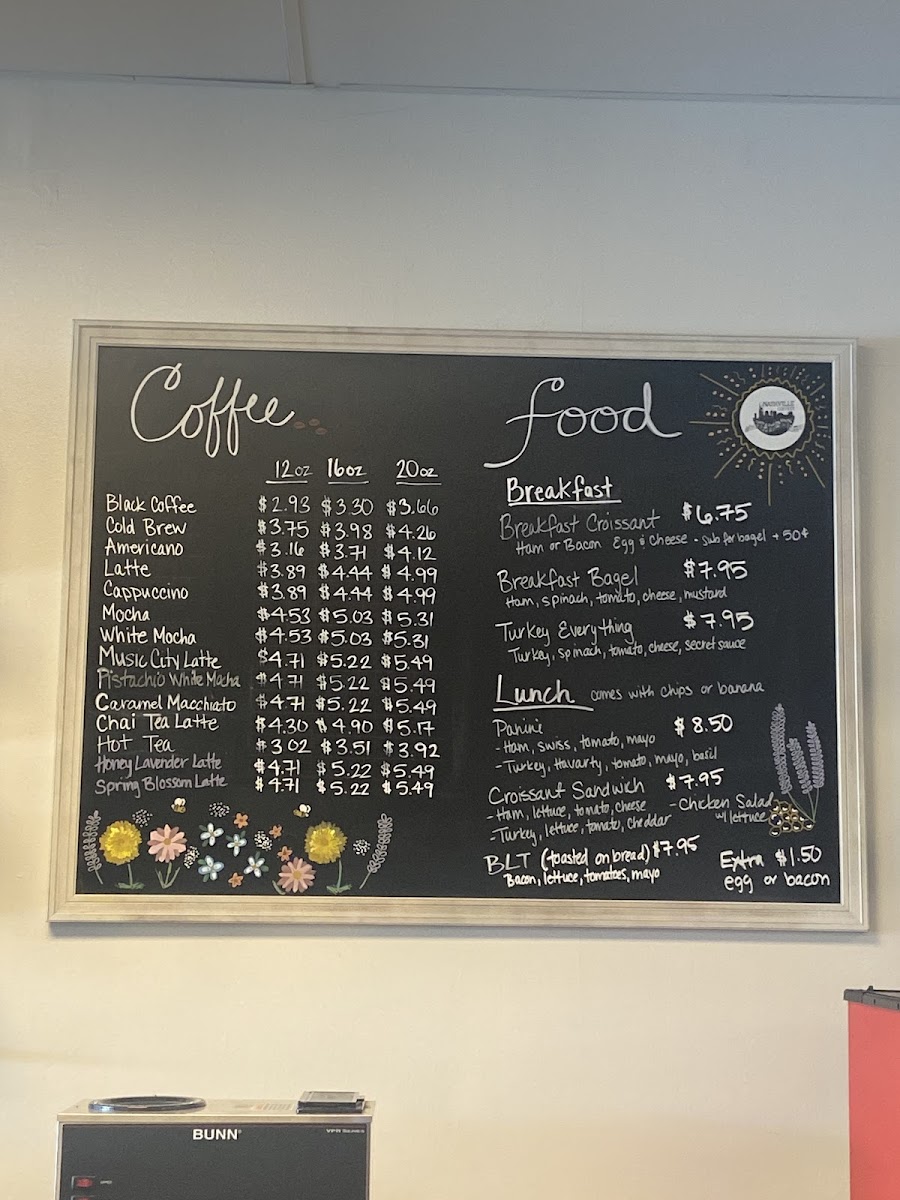 Coffee
12oz 16oz 20oz
Black Coffee $2.93 $3.30 $3.66
Cold Brew $3.75 $3.98 $4.26
Americano $3.16 $3.71 $4.12
Latte $3.89 $4.44 $4.99
Cappuccino $3.89 $4.44 $4.99
Mocha $4.53 $5.03 $5.31
White Mocha $4.53 $5.03 $5.31
Music City Latte $4.71 $5.22 $5.49
Pistachio White Mocha $4.71 $5.22 $5.49
Caramel Macchiato $4.71 $5.22 $5.49
Chai Tea Latte $4.30 $4.90 $5.17
Hot Tea $3.02 $3.51 $3.92
Honey Lavender Latte $4.71 $5.22 $5.49
Spring Blossom Latte $4.71 $5.22 $5.49
food
NASHVILLE
Breakfast
Breakfast Croissant $6.75
Ham or Bacon Egg & Cheese - Sub for bagel + 50¢
Breakfast Bagel $7.95
Ham, spinach, tomato, cheese, mustard
Turkey Everything $7.95
Turkey, spinach, tomato, cheese, secret sauce
Lunch comes with chips or banana
Panini $8.50
-Ham, swiss, tomato, mayo
-Turkey, Havarty, tomato, mayo, basil
Croissant Sandwich $7.95
-Ham, lettuce, tomato, cheese -Chicken Salad
w/ lettuce
-Turkey, lettuce, tomato, cheddar
BLT (toasted on bread) $7.95
Bacon, lettuce, tomatoes, mayo
Extra $1.50
egg or bacon
BUNN
VPR SERIES